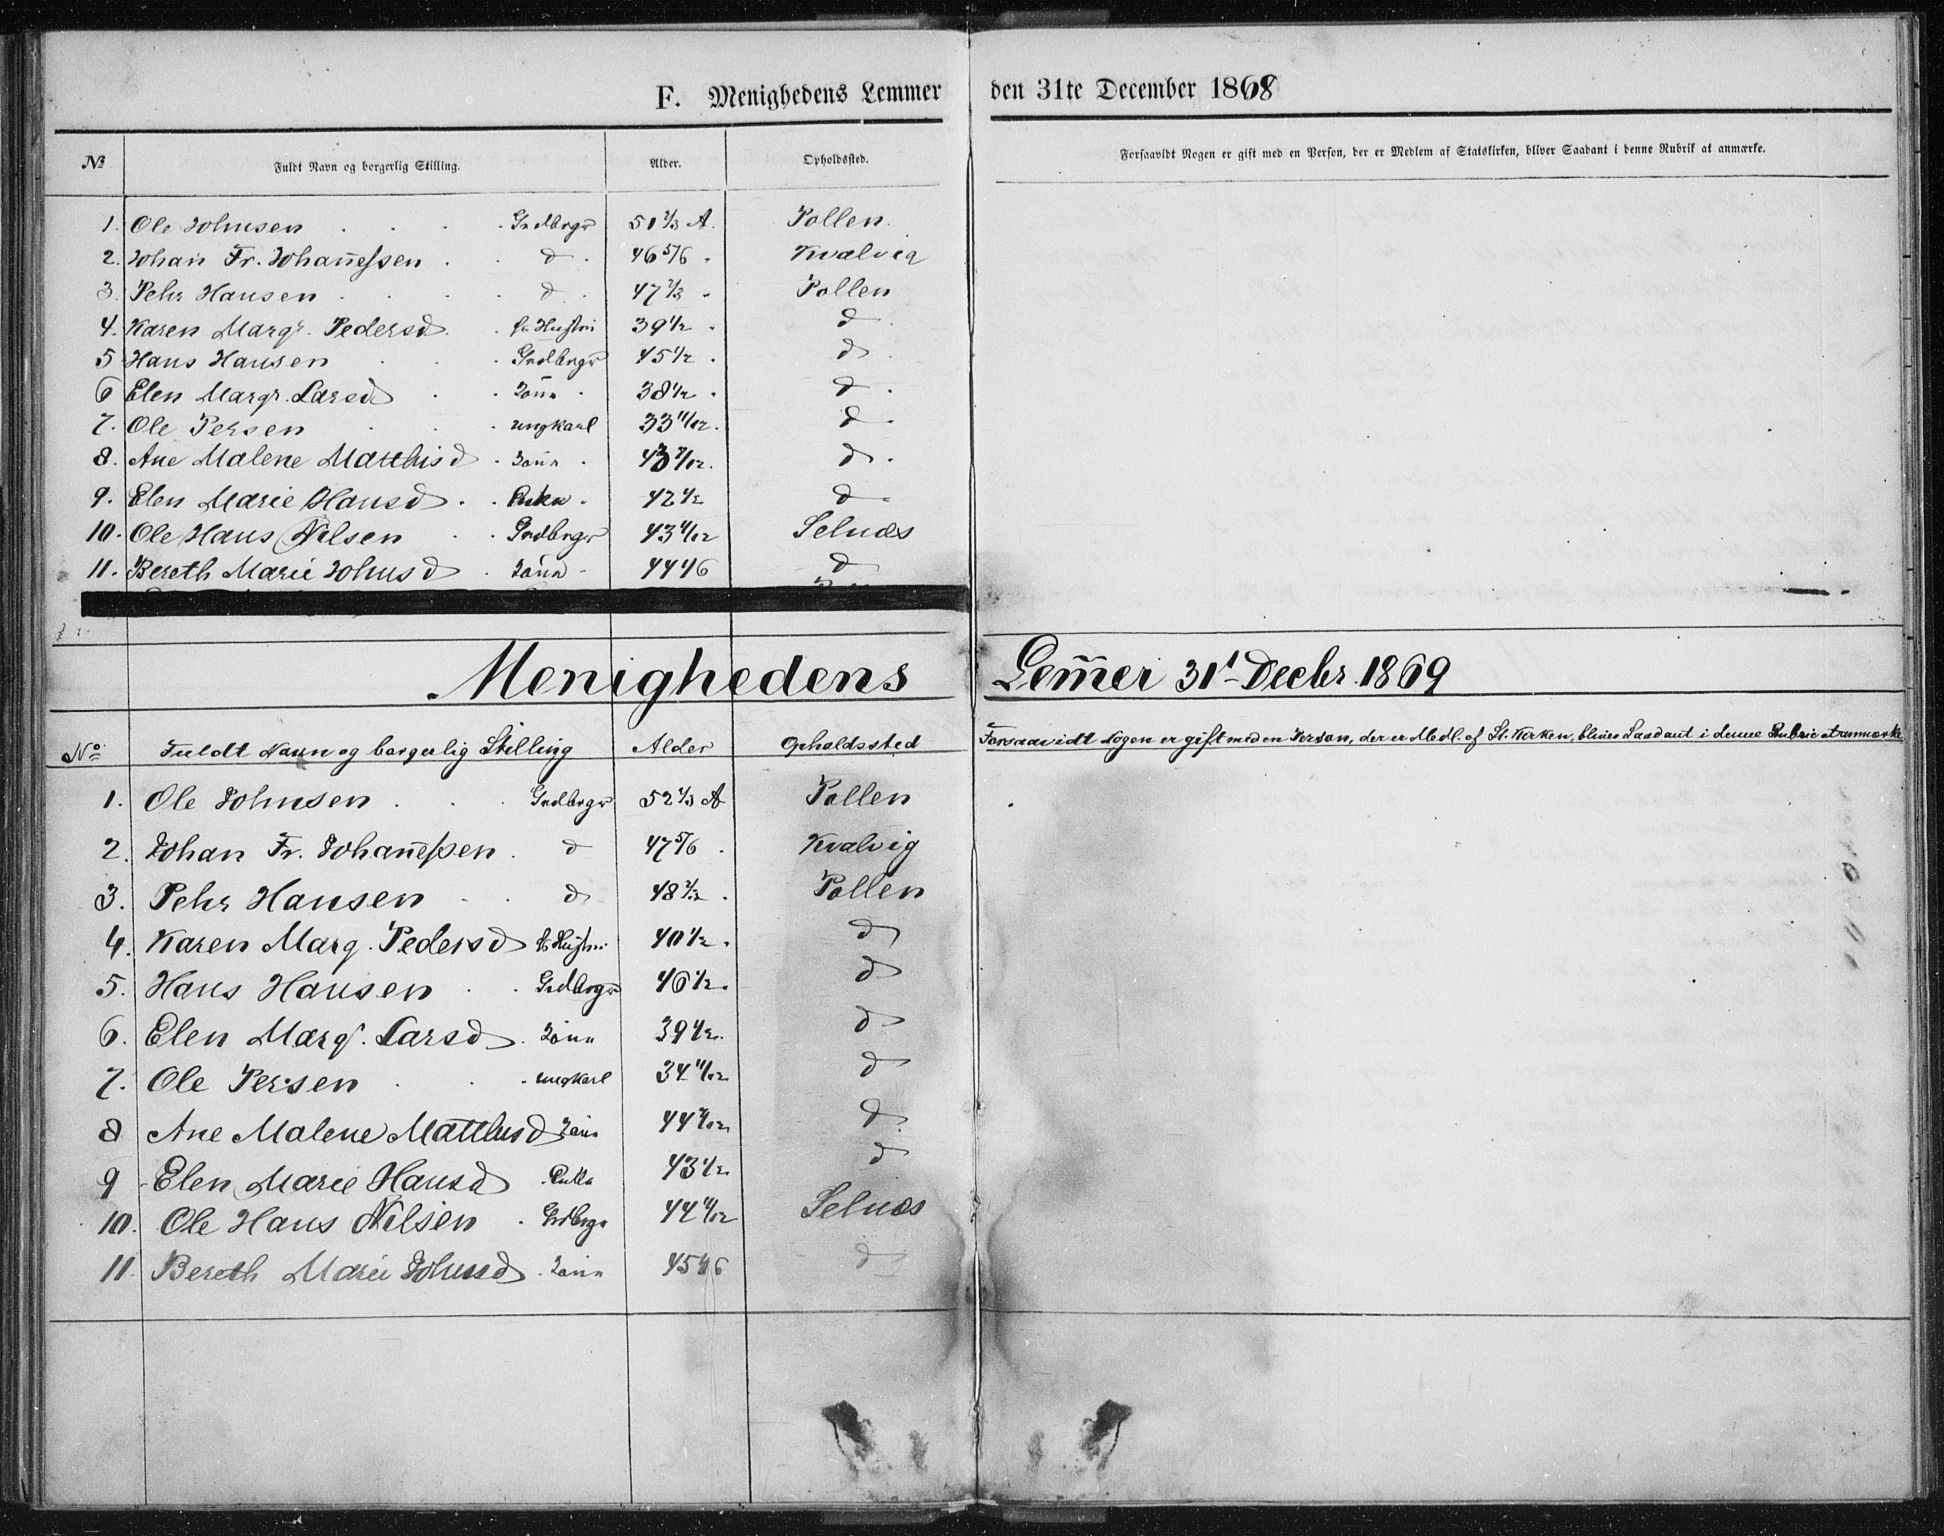 F. Menighedens Lemmer den 31te December 1868
№ Fuldt Navn og borgerlig Stilling. Alder. Opholdssted. Forsaavidt Nogen er gift med en Person, der er Medlem af Statskirken, bliver Saadant i denne Rubrik at anmærke.
1. Ole Johnsen Grdbrgr 51 1/3 A. Pollen.
2. Johan Fr. Johan̄eſsen d 46 5/6 Kvalvig
3. Pehr Hansen d 47 2/3 Pollen
4. Karen Margr. Pedersd. Hustru 39 1/2 d
5 Hans Hansen Grdbrgr 45 1/2 d
6 Elen Margr. Larsd 38 1/2 d
7. Ole Persen ungkarl 33 11/12 d
8. Ane Malene Matthisd 43 7/12 d
9. Elen Marie Hansd Enke 42 1/2 d
10. Ole Hans Nilsen Grdbrgr 43 11/12 Selnæs
11. Bereth Marie Johnsd 44 1/6 d
Menighedens Lem̄er 31t Decbr. 1869
No Fuldt Navn og borgerlig Stilling Alder Opholdssted Forsaavidt Nogen er gift med en Person, der er Medl. af St. Kirken, bliver Saadant i denne Rubric at anmærke
1. Ole Johnsen Grdbrgr 52 1/3 A Pollen
2. Johan Fr. Johan̄eſsen d 47 5/6 Kvalvig
3. Pehr Hansen d 48 2/3 Pollen
4. Karen Marg. Pedersd Hustru 40 1/2 d
5. Hans Hansen Grdbrgr 46 1/2 d
6. Elen Margr. Larsd 39 1/2 d
7. Ole Persen ungkarl 34 11/12 d
8 Ane Malene Matthisd 44 7/12 d
9 Elen Marie Hansd 43 1/2 d
10. Ole Hans Nilsen Grdbrgr 44 11/12 Selnæs
11. Bereth Marie Johnsd 45 1/6 d